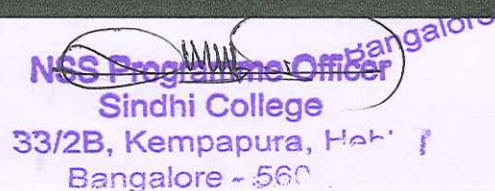 Bangalore
NSS Programme Officer
Sindhi College
33/2B, Kempapura,
Bangalore - 560